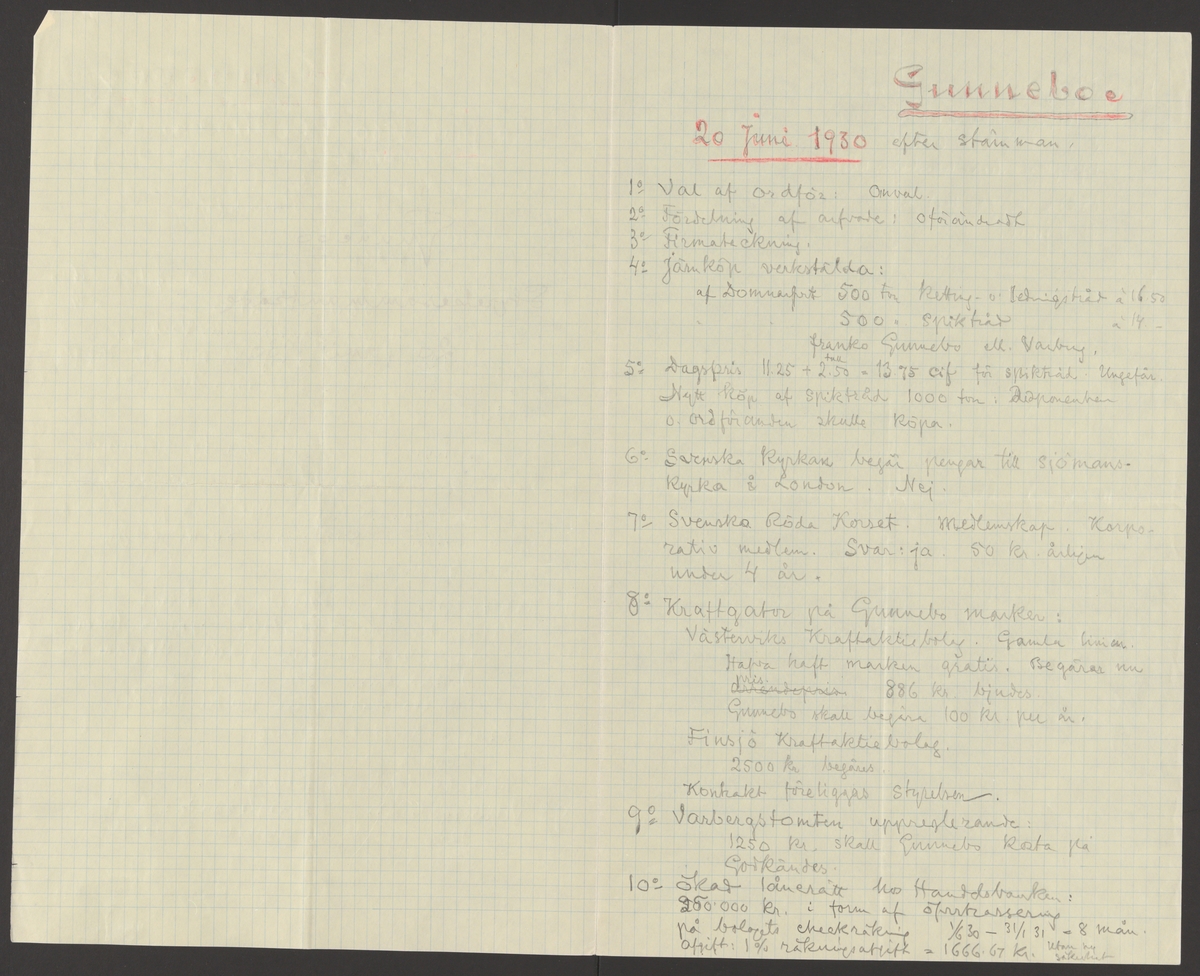 Gunnebo.
20 Juni 1930 efter stämman.
1º Val af ordför: Omval.
2º Fördelning af arfvode: oförändradt
3º Firmateckning.
4º Järnköp verkstälda:
af Domnarfvet 500 ton Ketting- o. Ledningstråd à 16 50
500 " spiktråd à 14 -
franko Gunnebo ell. Varberg.
5º Dagspris 11.25 + tull 2.50 = 13.75 cif för spiktråd. Ungefär.
Nytt köp af spiktråd 1000 ton: Disponenten
o. ordföranden skulle köpa.
6º Svenska Kyrkan begär pengar till sjömans-
kyrka i London. Nej.
7º Svenska Röda Korset: medlemskap. Korpo-
rativ medlem. Svar: ja. 50 kr. årligen
under 4 år.
8º Kraftgator på Gunnebo marker:
Västerviks Kraftaktiebolag. Gamla linien.
Hafva haft marken gratis. Begäras nu
886 kr. bjudes.
Gunnebo skall begära 100 kr. per år.
Finsjö Kraftaktiebolag.
2500 kr begäres.
Kontrakt föreläggas styrelsen.
9º Varbergstomten uppreglerande:
1250 kr. skall Gunnebo kosta på
Godkändes.
10º Ökad lånerätt hos Handelsbanken:
250.000 kr. i form af öfvertrassering
på bolagets checkräkning 1/6 30 - 31/1 31 = 8 mån.
Afgift: 1% räkningsafgift = 1666.67 Kr. Utan ny säkerhet